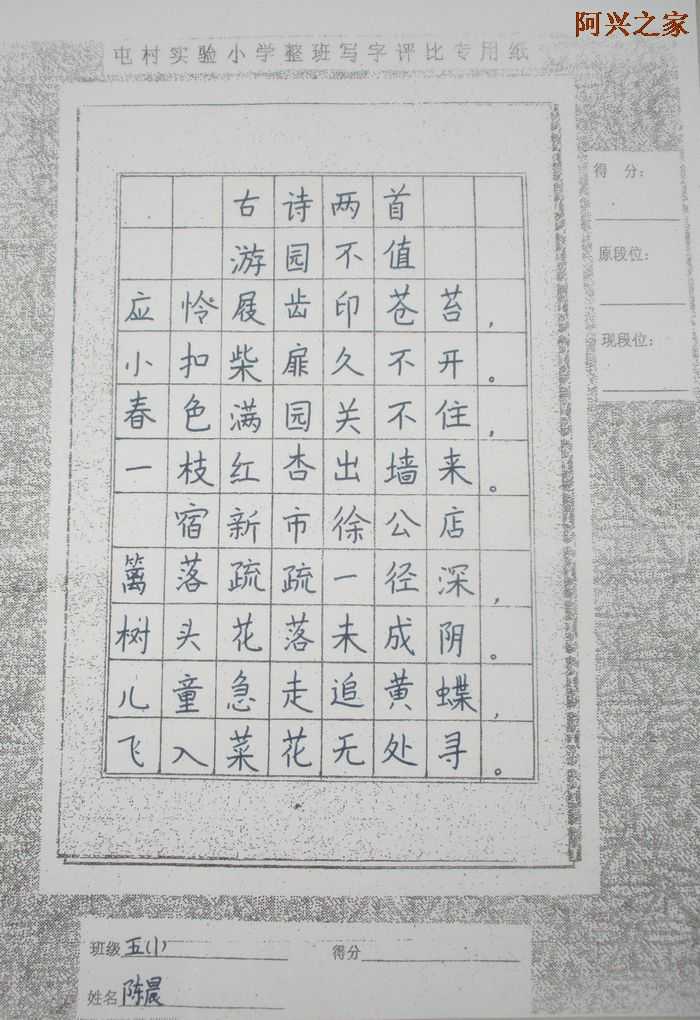 阿兴之家
屯村实验小学整班写字评比专用纸
得 分：
原段位：
现段位：
古诗两首
游园不值
应怜屐齿印苍苔，
小扣柴扉久不开。
春色满园关不住，
一枝红杏出墙来。
宿新市徐公店
篱落疏疏一径深，
树头花落未成阴。
儿童急走追黄蝶，
飞入菜花无处寻。
班级 五(1) 得分
姓名 陈晨